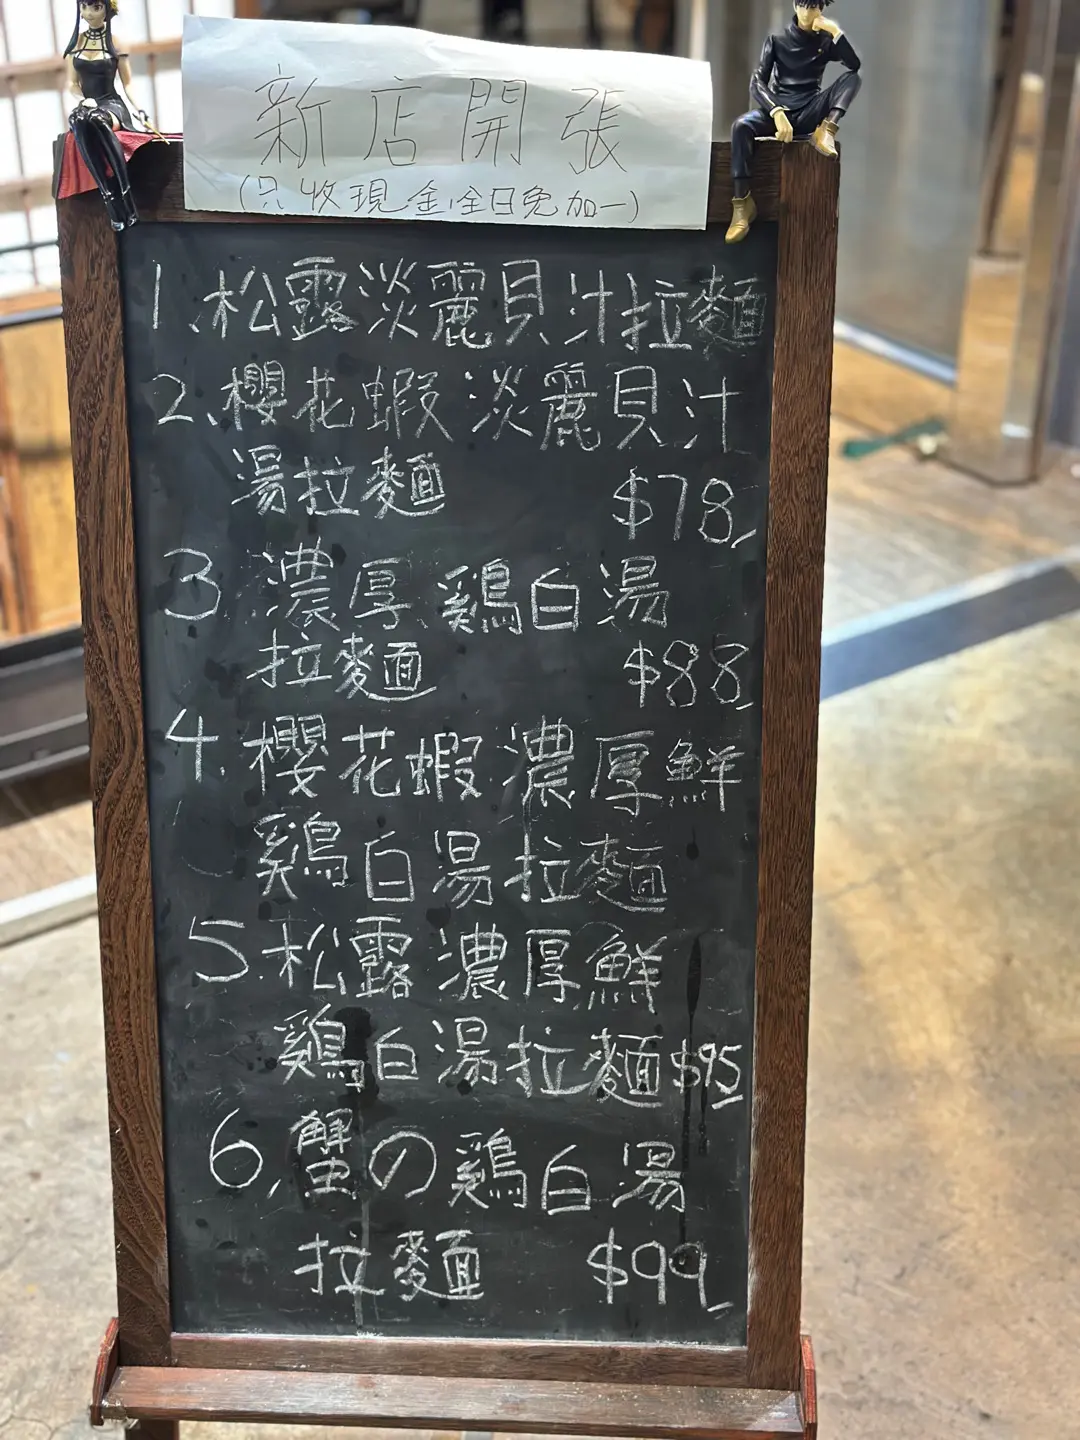 新店開張
(只收現金,全日免加一)
1、松露淡麗貝汁拉麵
2、櫻花蝦淡麗貝汁
湯拉麵 $78
3 濃厚鷄白湯
拉麵 $88
4. 櫻花蝦濃厚鮮
鷄白湯拉麵
5.松露濃厚鮮
鷄白湯拉麵$95
6、蟹の鷄白湯
拉麵 $99